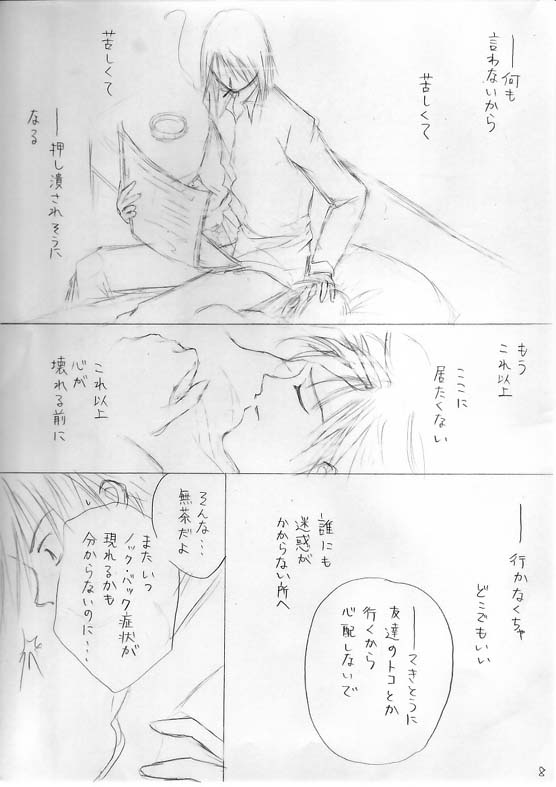 ――何も
言わないから
苦しくて
苦しくて
――押し潰されそうに
なる
もう
これ以上
ここに
居たくない
これ以上
心が
壊れる前に
――行かなくちゃ
どこでもいい
誰にも
迷惑が
かからない所へ
――てきとうに
友達のトコとか
行くから
心配しないで
そんな・・・
無茶だよ
またいつ
ノック・バック症状が
現れるかも
分からないのに・・・
8